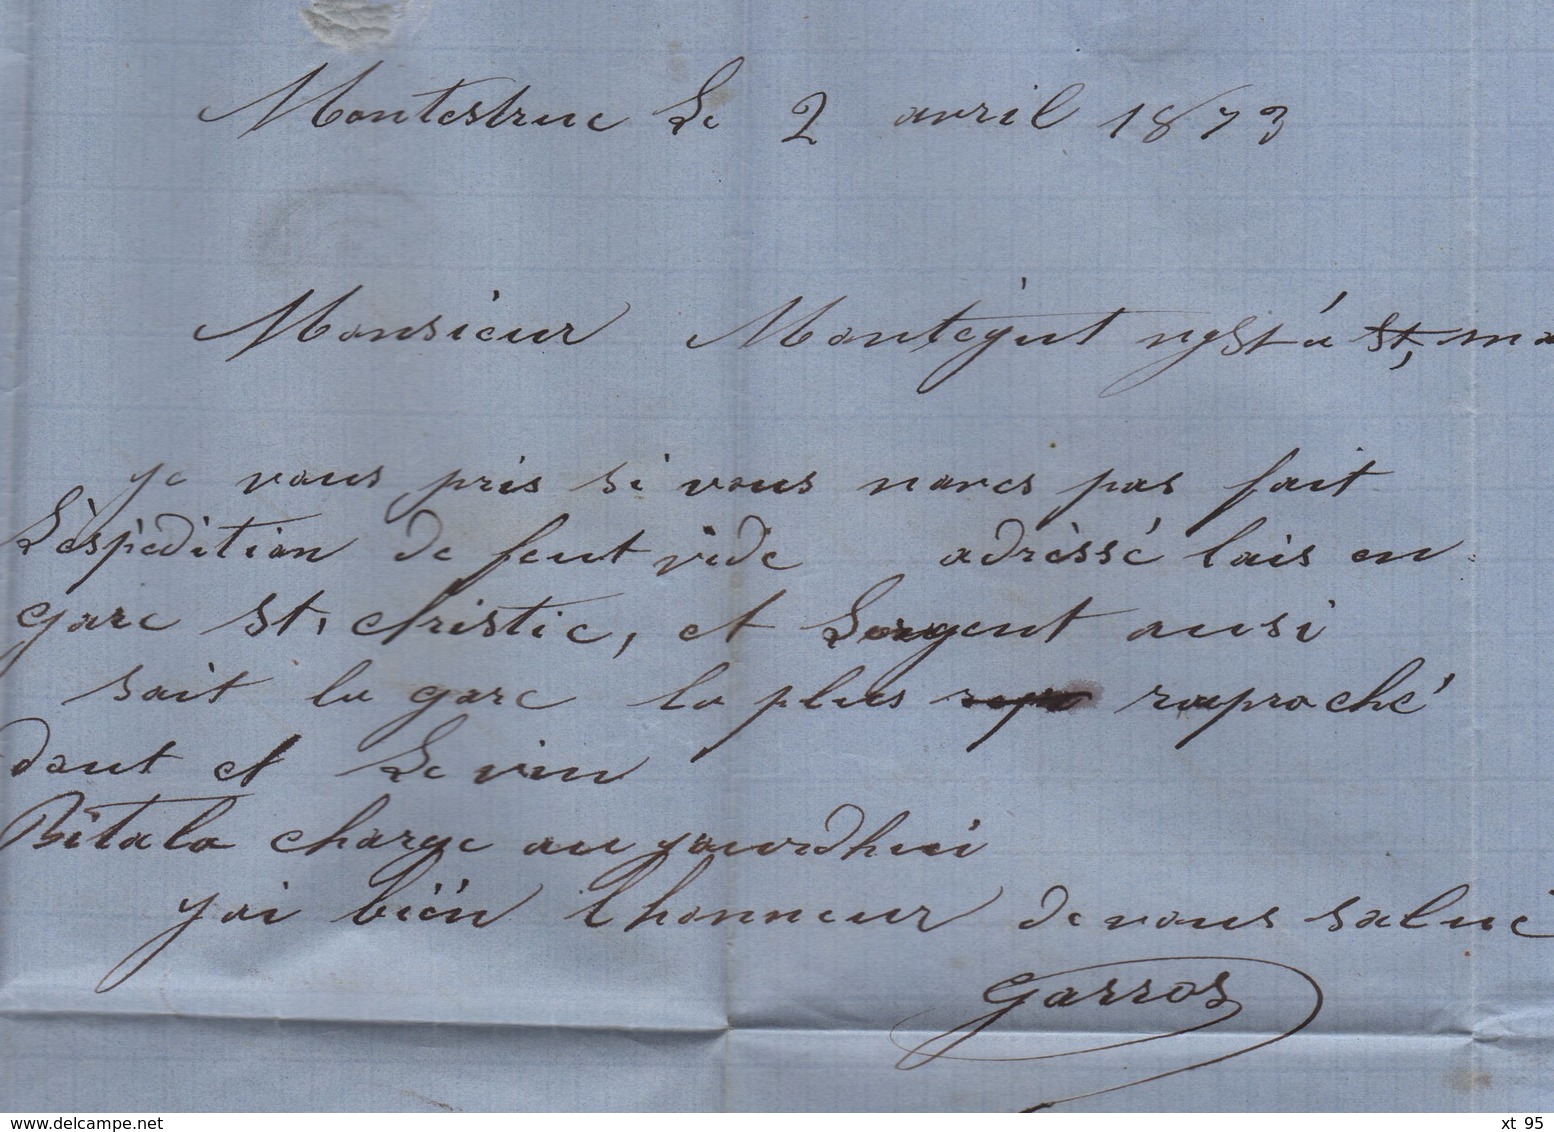 Montestruc Le 2 avril 1873
Monsieur Montégut ngst à st, ma
je vous pris si vous naves pas fait
Lèspèdition de feut vide adrèssé lais en
gare st, christie, et Largent ausi
sait la gare la plus raproché
dont et Le vin
Bitala charge au yourdhui
yai bièn lhonneur de vous salué
Garros
www.delcampe.net
xt 95